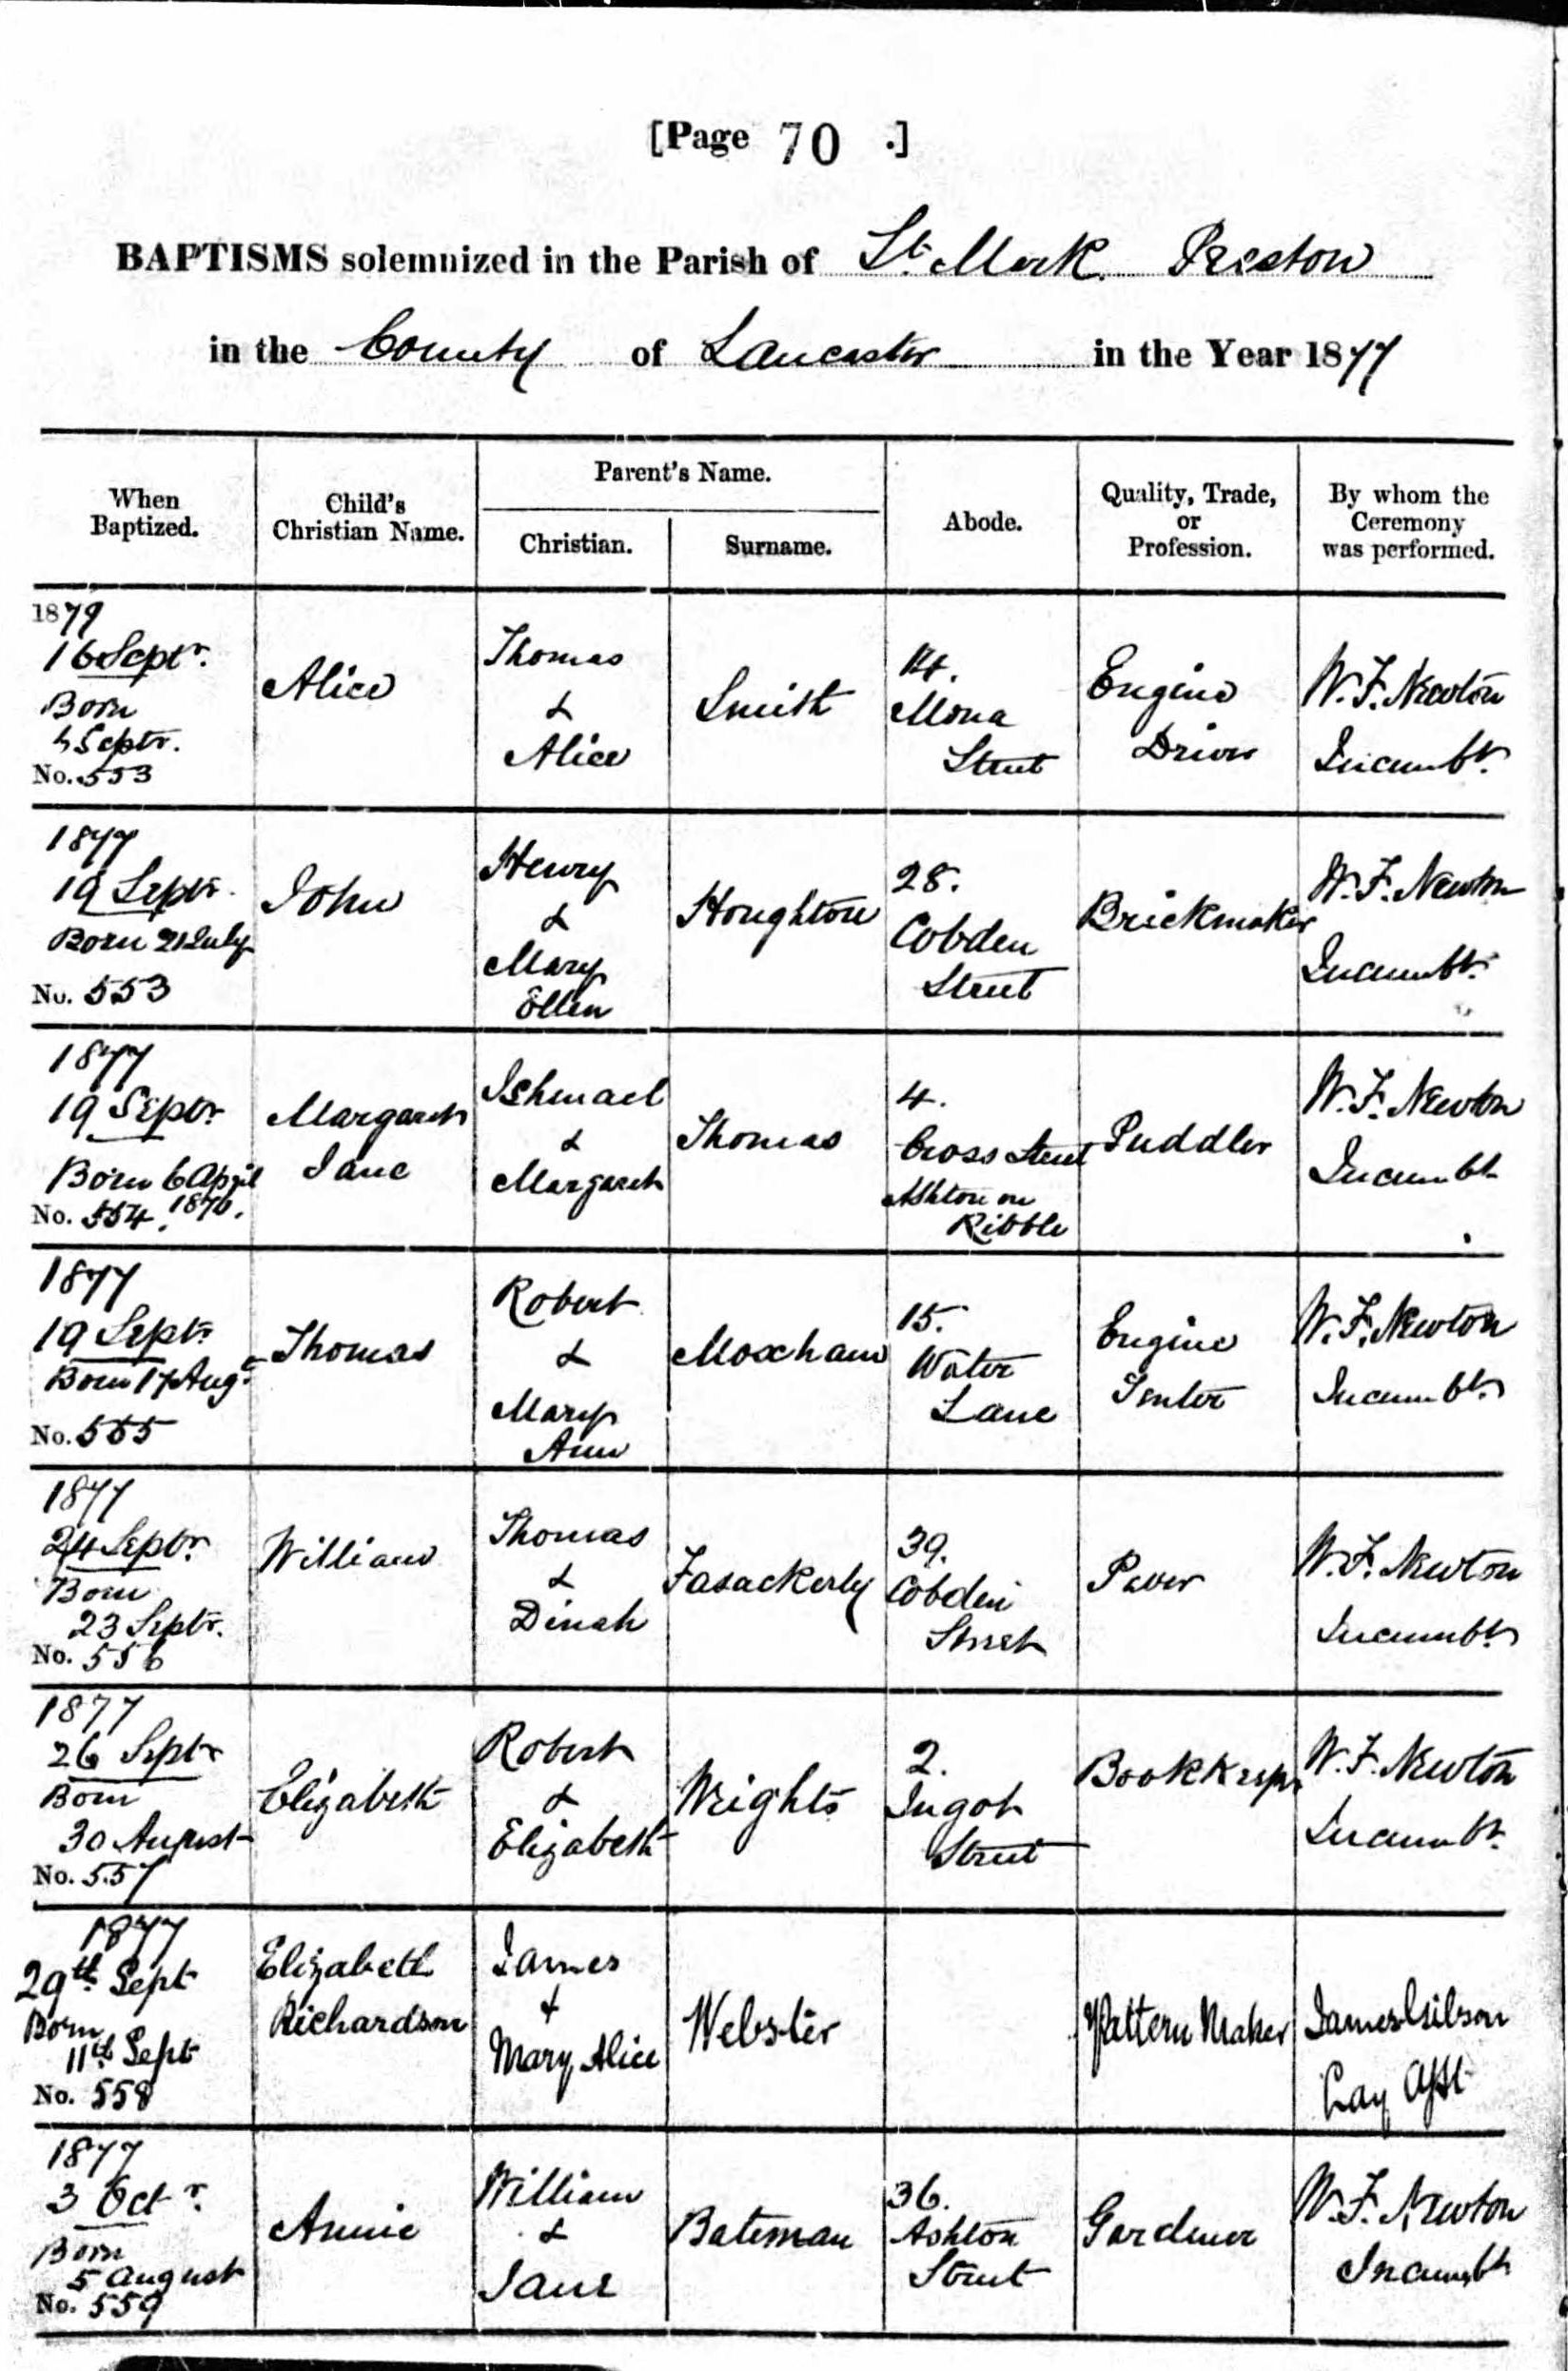 [Page 70 .]
BAPTISMS solemnized in the Parish of St. Mark Preston
in the County of Lancaster in the Year 1877
When Baptized.
Child's Christian Name.
Parent's Name.
Christian.
Surname.
Abode.
Quality, Trade, or Profession.
By whom the Ceremony was performed.
1879
16 Septr.
Born
Septr.
No. 553
Alice
Thomas
&
Alice
Smith
14.
Mona
Street
Engine
Driver
W. F. Newton
Incumbt.
1877
19 Septr.
Born 21 July
No. 553
John
Henry
&
Mary
Ellen
Houghton
28.
Cobden
Street
Brickmaker
W. F. Newton
Incumbt.
1877
19 Septr.
Born 6 April
1876.
No. 554.
Margaret
Jane
Ishmael
&
Margaret
Thomas
4.
Cross Street
Ashton on
Ribble
Puddler
W. F. Newton
Incumbt
1877
19 Septr.
Born 17 Augt.
No. 555
Thomas
Robert
&
Mary
Ann
Moxham
15.
Water
Lane
Engine
Tenter
W. F. Newton
Incumbt.
1877
24 Septr.
Born
23 Septr.
No. 556
William
Thomas
&
Dinah
Fasackerley
39.
Cobden
Street
Paver
W. F. Newton
Incumbt.
1877
26 Septr
Born
30 August
No. 557
Elizabeth
Robert
&
Elizabeth
Wright
2.
Ingot
Street
Bookkeeper
W. F. Newton
Incumbt.
1877
29th Sept
Born
11th Sept
No. 558
Elizabeth
Richardson
James
+
Mary Alice
Webster
Pattern Maker
James Gibson
Lay Asst
1877
3 Octr.
Born
5 August
No. 559
Annie
William
&
Jane
Bateman
36.
Ashton
Street
Gardener
W. F. Newton
Incumbt